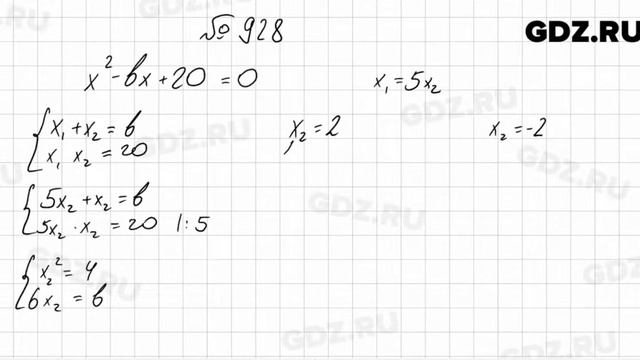 № 928
GDZ.RU
x² - bx + 20 = 0
x₁ = 5x₂
{ x₁ + x₂ = b
x₁ x₂ = 20
x₂ = 2
x₂ = -2
{ 5x₂ + x₂ = b
5x₂ · x₂ = 20 | : 5
{ x₂² = 4
6x₂ = b